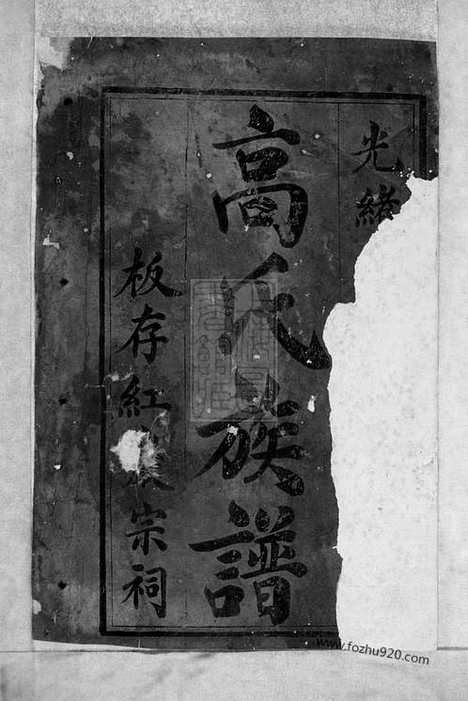 光緒
高氏族譜
板存紅宗祠
www.fozhu920.com